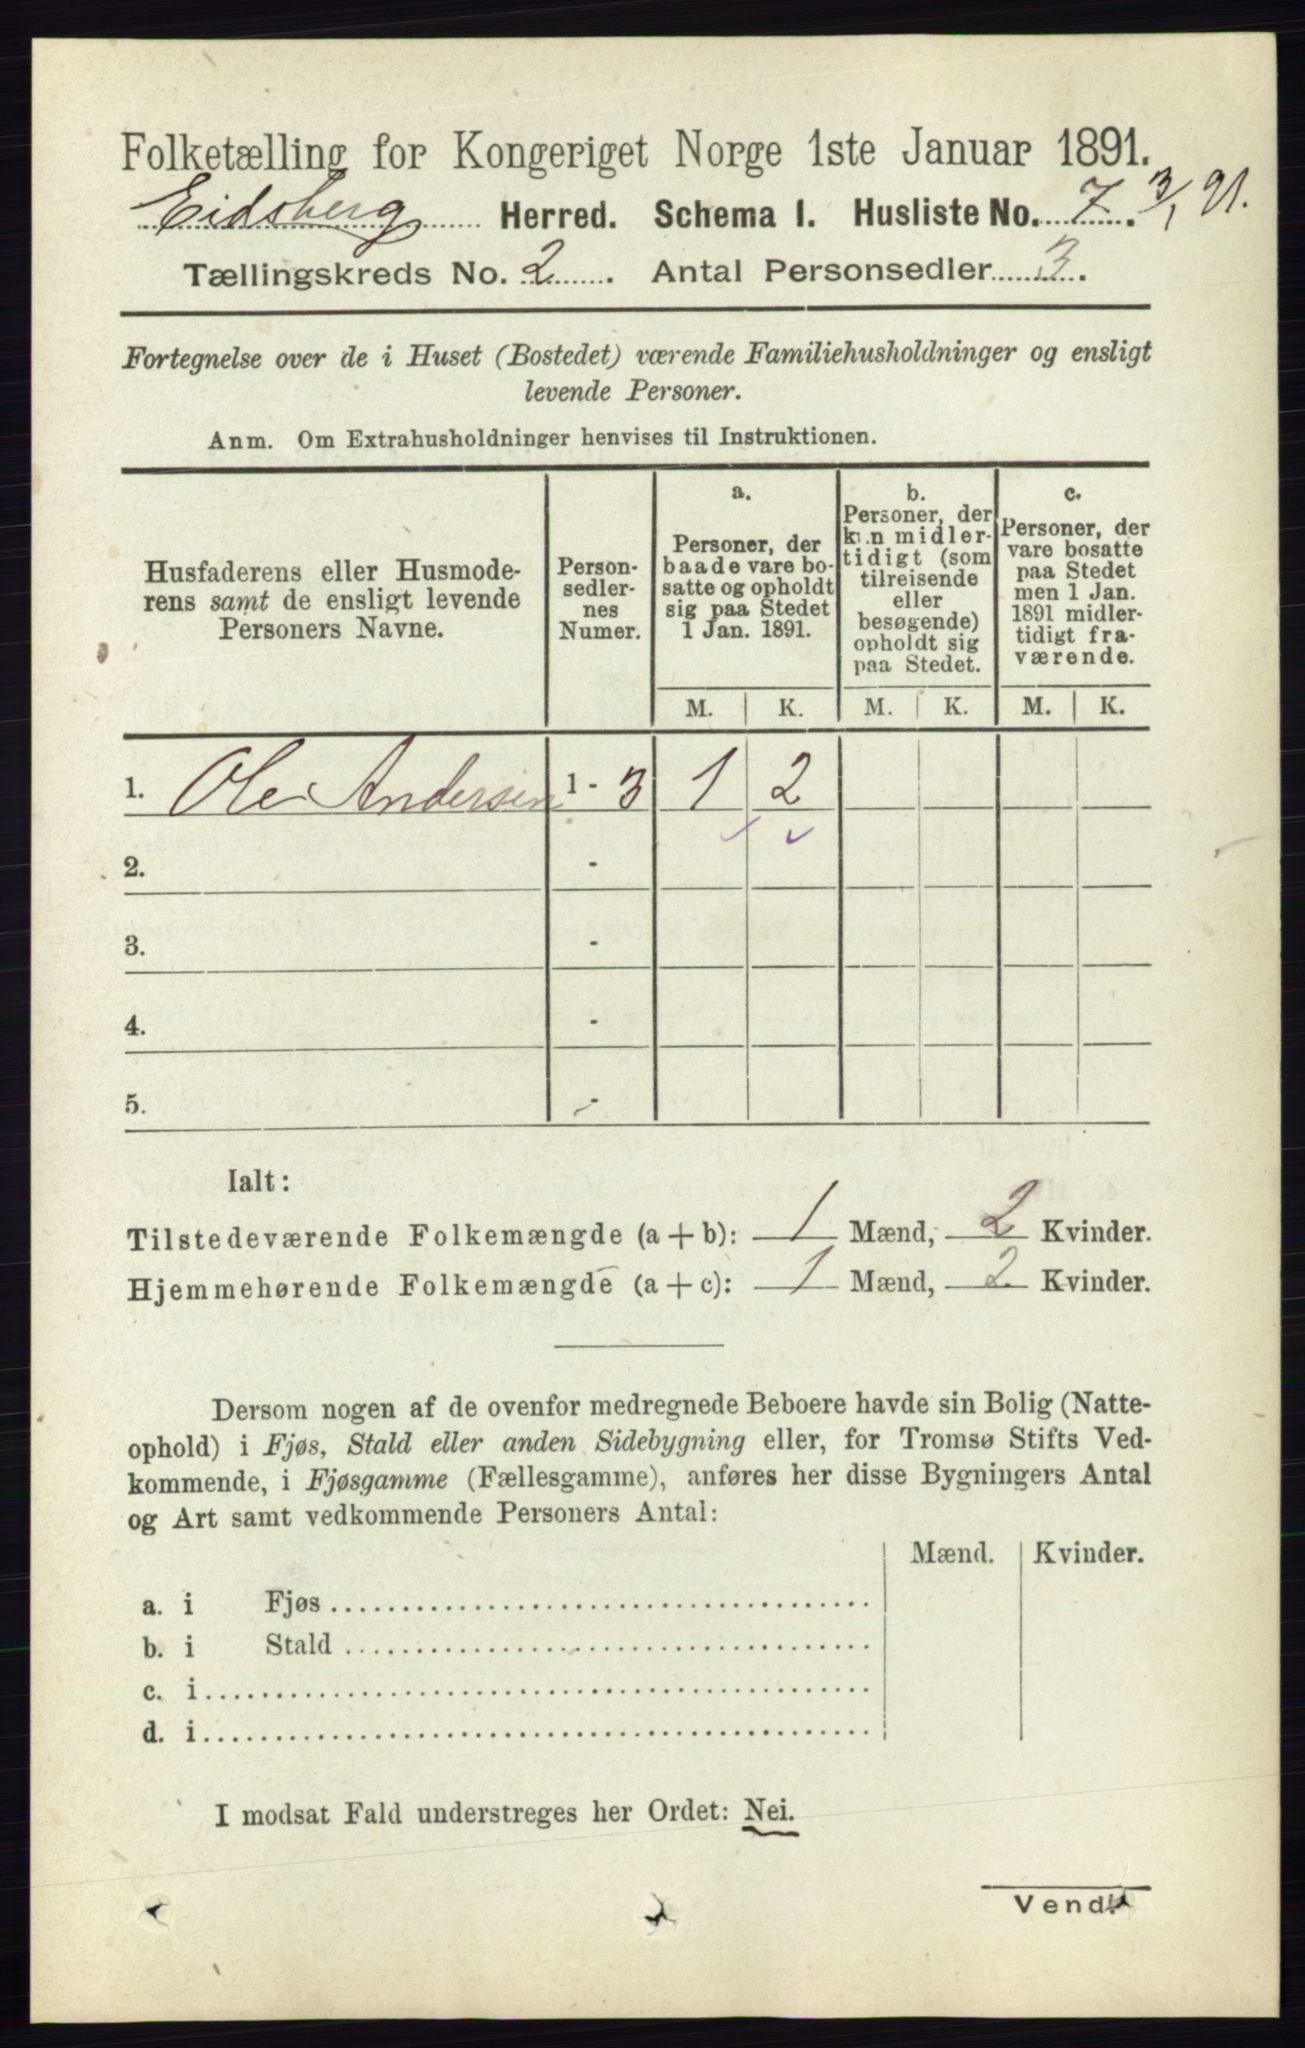 Folketælling for Kongeriget Norge 1ste Januar 1891.
Eidsberg Herred. Schema I. Husliste No. 7. 3/1 91.
Tællingskreds No. 2. Antal Personsedler 3.
Fortegnelse over de i Huset (Bostedet) værende Familiehusholdninger og ensligt
levende Personer.
Anm. Om Extrahusholdninger henvises til Instruktionen.
Husfaderens eller Husmode-
rens samt de ensligt levende
Personers Navne.
Person-
sedler-
nes
Numer.
a.
Personer, der
baade vare bo-
satte og opholdt
sig paa Stedet
1 Jan. 1891.
b.
Personer, der
kun midler-
tidigt (som
tilreisende
eller
besøgende)
opholdt sig
paa Stedet.
c.
Personer, der
vare bosatte
paa Stedet
men 1 Jan.
1891 midler-
tidigt fra-
værende.
M. K. M. K. M. K.
1. Ole Andersen 1 - 3 1 2
2. -
3. -
4. -
5. -
Ialt:
Tilstedeværende Folkemængde (a + b): 1 Mænd, 2 Kvinder.
Hjemmehørende Folkemængde (a + c): 1 Mænd, 2 Kvinder.
Dersom nogen af de ovenfor medregnede Beboere havde sin Bolig (Natte-
ophold) i Fjøs, Stald eller anden Sidebygning eller, for Tromsø Stifts Ved-
kommende, i Fjøsgamme (Fællesgamme), anføres her disse Bygningers Antal
og Art samt vedkommende Personers Antal:
Mænd. Kvinder.
a. i Fjøs
b. i Stald
c. i
d. i
I modsat Fald understreges her Ordet: Nei.
Vend!